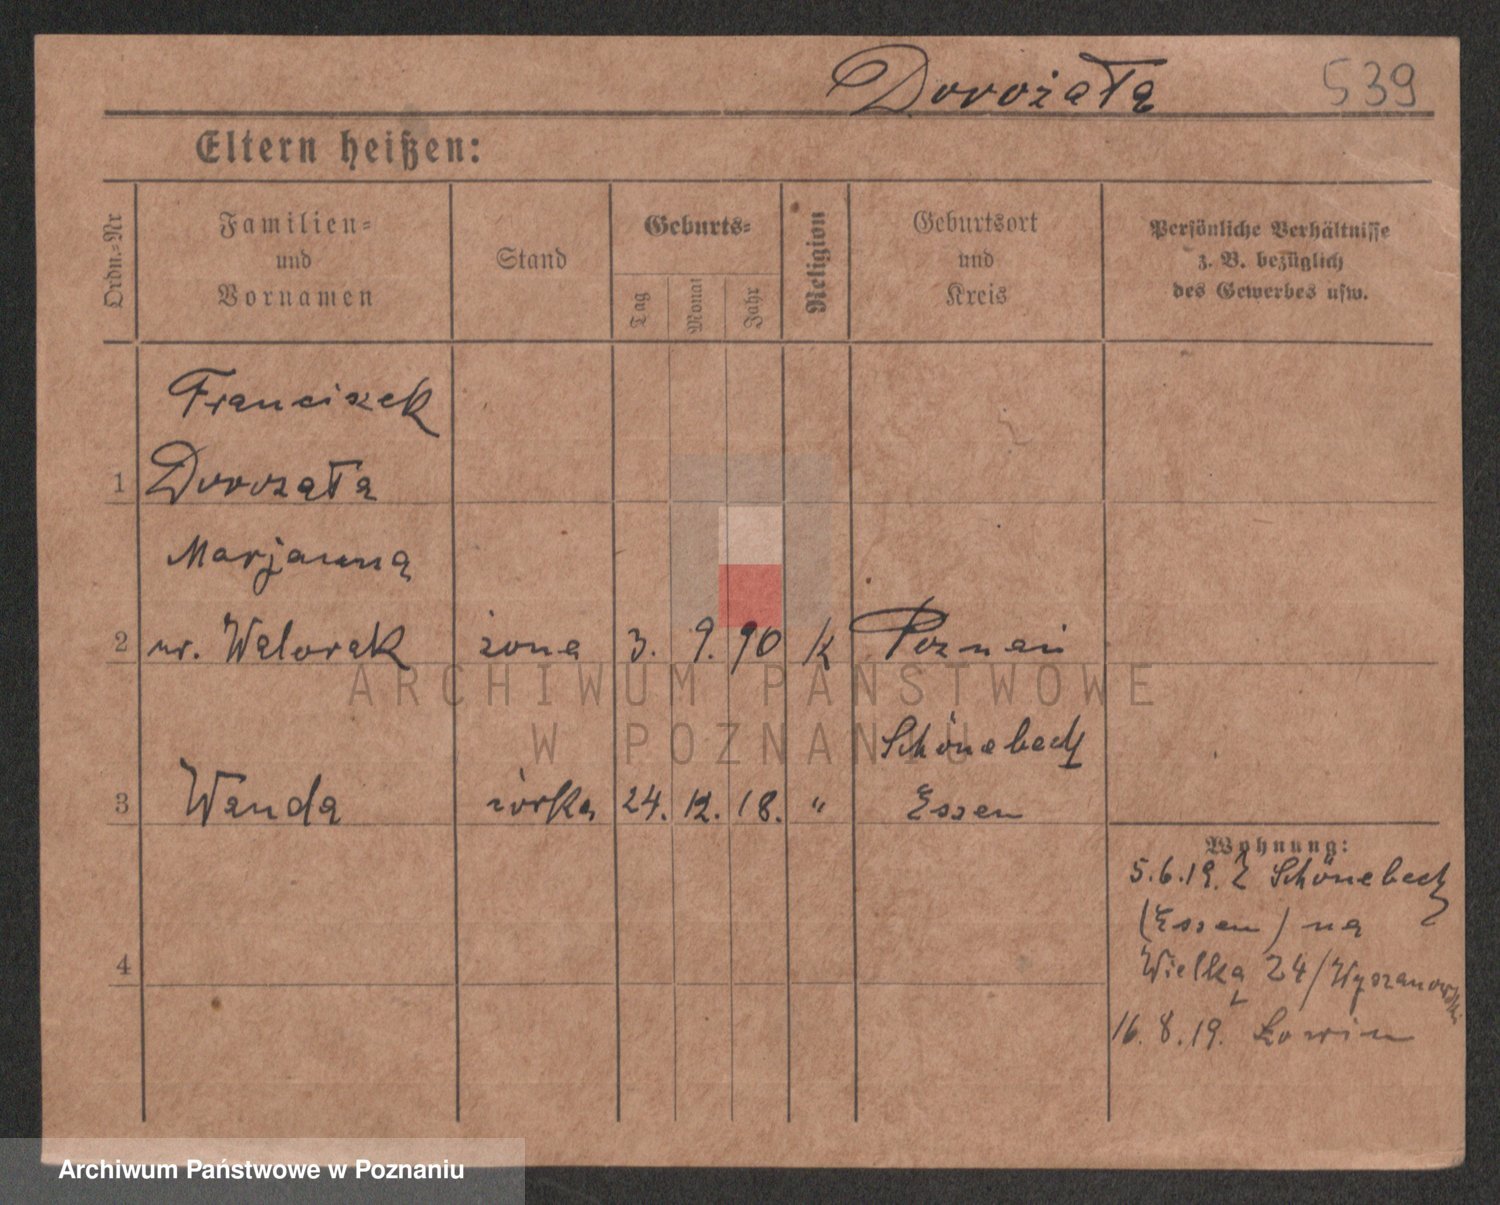 Dorożała 539
Eltern heißen:
Ordn.-Nr
Familien-
und
Vornamen
Stand
Geburts-
Tag
Monat
Jahr
Religion
Geburtsort
und
Kreis
Persönliche Verhältnisse
z. B. bezüglich
des Gewerbes usw.
Franciszek
1 Dorozała
Marjanna
2 ur. Walorek żona 3. 9. 90 K Poznań
Schönebeck
3 Wanda córka 24. 12. 18. " Essen
Wohnung:
5.6.19. Z Schönebeck
(Essen) na
4
Wielką 24/Wyszanowski
16. 8. 19.
ARCHIWUM PAŃSTWOWE
W POZNANIU
Archiwum Państwowe w Poznaniu